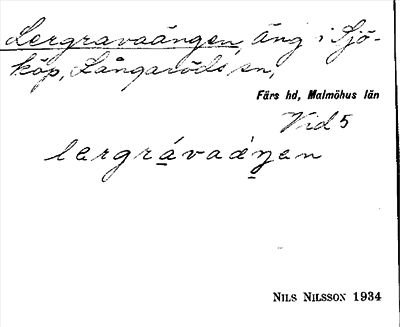 Lergravaängen, äng i Sjö-
köp, Långaröds sn,
Färs hd, Malmöhus län
Vid 5
lergrávaàŋen
NILS NILSSON 1934